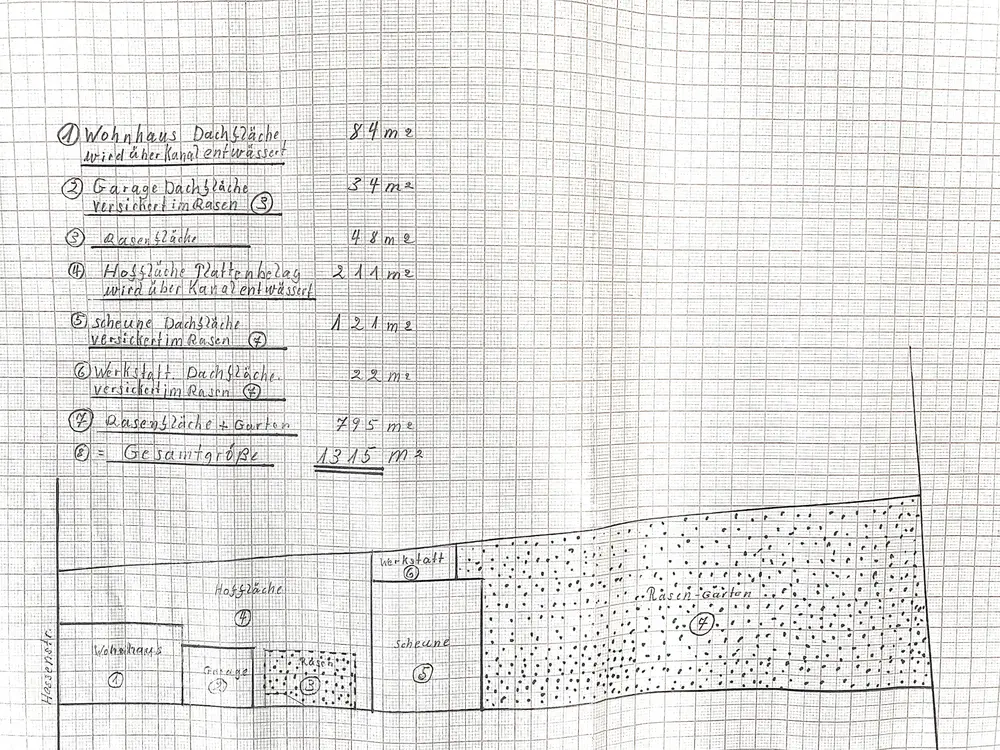 ① Wohnhaus Dachfläche 84 m²
wird über Kanal entwässert
② Garage Dachfläche 34 m²
versickert im Rasen ③
③ Rasenfläche 48 m²
④ Hoffläche Plattenbelag 211 m²
wird über Kanal entwässert
⑤ scheune Dachfläche 121 m²
versickert im Rasen ⑦
⑥ Werkstatt. Dachfläche. 22 m²
versickert im Rasen ⑦
⑦ Rasenfläche + Garten 795 m²
⑧ = Gesamtgröße 1315 m²
Werkstatt
⑥
Hoffläche
④
Rasen-Garten
⑦
Scheune
⑤
Wohnhaus
①
Garage
②
Rasen
③